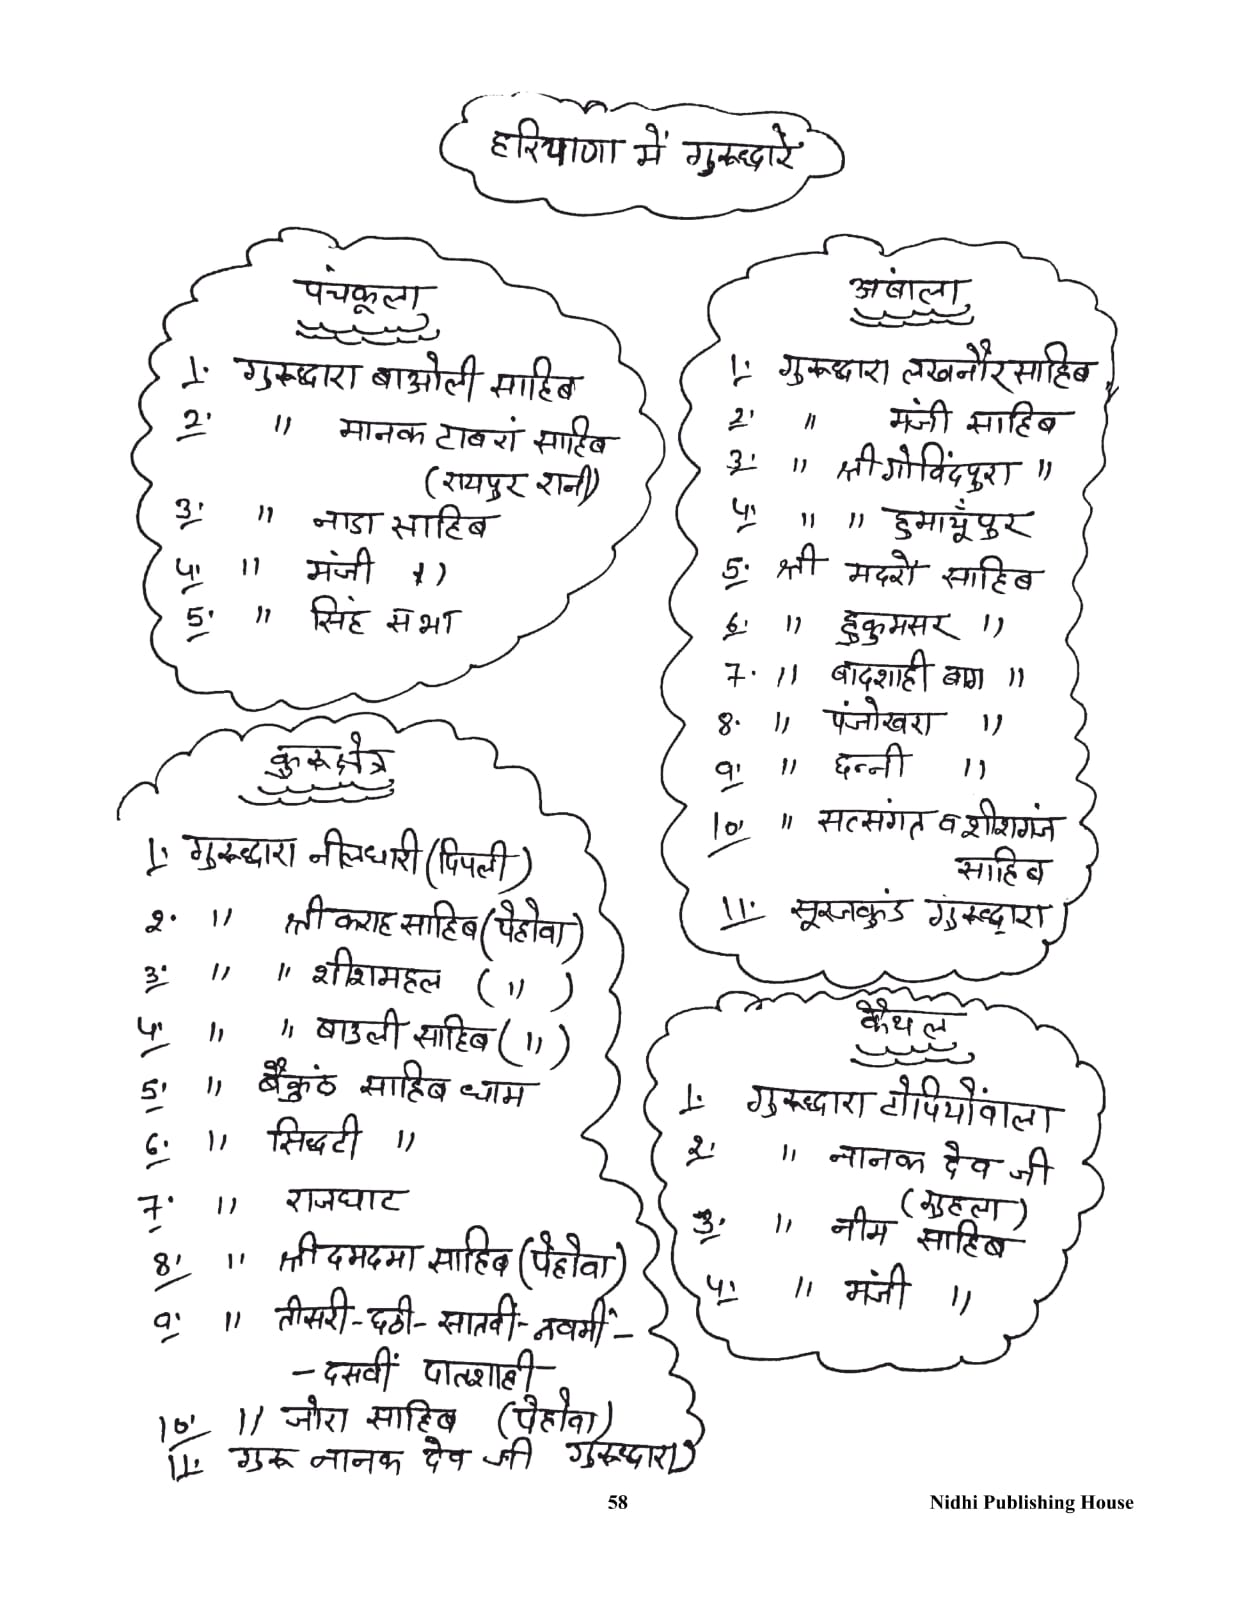 हरियाणा में गुरुद्धारे
पंचकूला
1. गुरुद्धारा बाओली साहिब
2. " मानक टाबरां साहिब
(रायपुर रानी)
3. " नाडा साहिब
4. " मंजी "
5. " सिंह सभा
अंबाला
1. गुरुद्धारा लखनौर साहिब
2. " मंजी साहिब
3. " श्री गोविंदपुरा "
4. " " हुमायूँपुर
5. श्री मदरौ साहिब
6. " हुकुमसर "
7. " बादशाही बाग "
8. " पंजोखरा "
9. " छन्नी "
10. " सत्संगत व शीशगंज
साहिब
11. सूरजकुंड गुरुद्धारा
कुरूक्षेत्र
1. गुरुद्धारा नीलधारी (पिपली)
2. " श्री कराह साहिब (पेहोवा)
3. " " शीशमहल ( " )
4. " " बाउली साहिब ( " )
5. " बैकुंठ साहिब धाम
6. " सिद्धटी "
7. " राजघाट
8. " श्री दमदमा साहिब (पेहोवा)
9. " तीसरी - छठी - सातवीं - नवमीं -
- दसवीं पातशाही
10. " जोरा साहिब (पेहोवा)
11. गुरू नानक देव जी गुरुद्धारा
कैथल
1. गुरुद्धारा टोपियोंवाला
2. " नानक देव जी
(गुहला)
3. " नीम साहिब
4. " मंजी "
58 Nidhi Publishing House